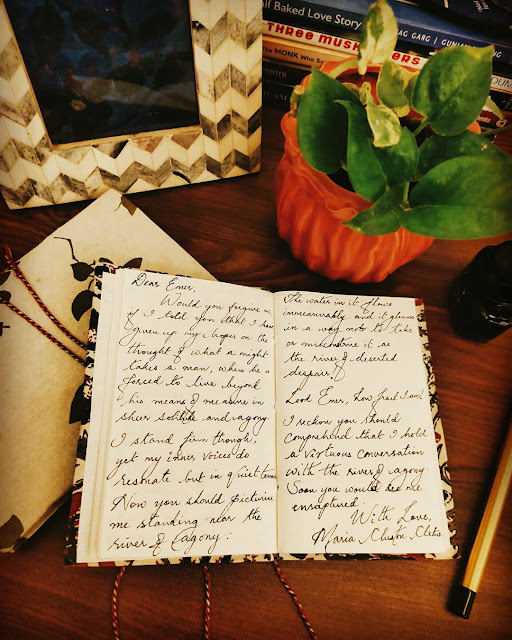 ll Baked Love Story
AG GARG / GUNJAN
THREE MUSK ERS
The MONK Who S
UNTER
DUM
Dear Emer,
Would you forgive me
if I told you that I have
given up my hopes on the
thought of what a might
takes a man, when he is
forced to live beyond
his means of measure in
sheer solitude and agony.
I stand firm though,
yet my inner voices do
resonate but in quiet tones
Now you should picturise
me standing near the
river of Cagony :
The water in it flows
immeasurably and it gleams
in a way not to take
or misconstrue it as
the river of deserted
despair!
Look Emer, how frail I am!
I reckon you should
comprehend that I hold
a virtuous conversation
with the river of agony
Soon you would see me
enraptured.
With Love,
Maria